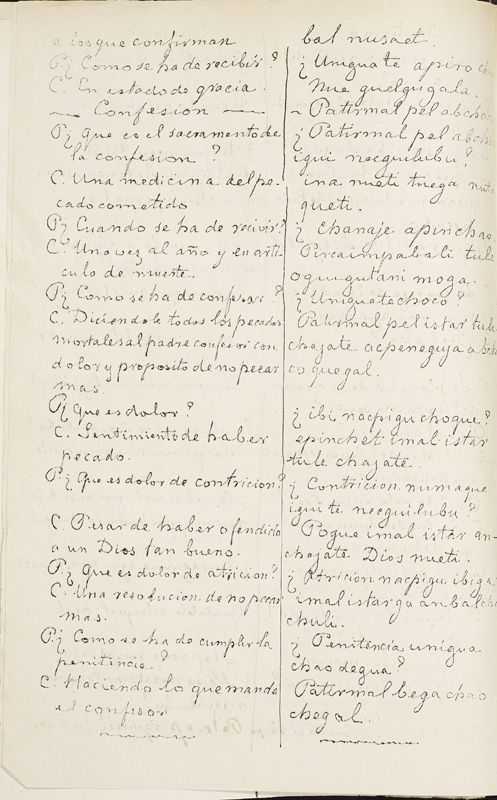 a los que confirman
P. ¿ Como se ha de recibir?
C. En estado de gracia.
— Confesion —
P. ¿ Que es el sacramento de
la confesion ?
C. Una medicina del pe-
cado cometido
P. ¿ Cuando se ha de recivir?
C. Una vez al año y en arti-
culo de muerte.
P. ¿ Como se ha de confesar ?
C. Diciendole todos los pecados
mortales al padre confesor con
dolor y proposito de no pecar
mas.
P. ¿ Que es dolor?
C. Sentimiento de haber
pecado.
P. ¿ Que es dolor de contricion?
C. Pesar de haber ofendido
a un Dios tan bueno.
P. ¿ Que es dolor de atricion?
C. Una resolucion de no pecar
mas.
P. ¿ Como se ha de cumplir la
penitincia ?
C. Haciendo lo que manda
el confesor
bal nusaet.
¿ Uniguate apiro
nue guelgugala.
— Patirmal pel abcho
¿ Patirmal pel abcho
igui necguilubu?
ina nueti tuega
queti.
¿ Chanaje apinchao
Pircaimpabali tule
oguugutani moga.
¿ Uniguatechoco ?
Patirmal pel istar tule
chajate acpeneguja
co quegal.
¿ ibi nacpigu choque?
epinchet imal istar
tule chajate.
¿ Contricion numaque
igui te necguilubu?
Pogue imal istar an-
chajate Dios nueti.
¿ Atricion nacpigu ibiga
imal istarga anbalcha
chuli.
¿ Penitencia unigua
chao degua?
Patirmal bega chao
chegal.